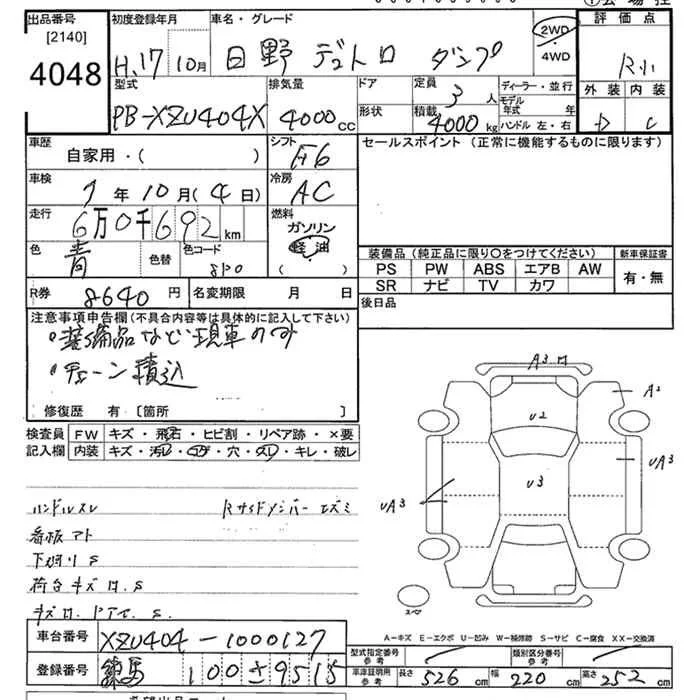 出品番号 [2140] 4048
初度登録年月 H.17 10月
車名・グレード 日野 デュトロ ダンプ
2WD
4WD
評価点 R小
外装 内装
D C
型式 PB-XZU404X
排気量 4000cc
ドア
形状
定員 3人
積載 4000kg
ディーラー・並行
モデル年式 年
ハンドル 左・右
車歴 自家用・( )
シフト F6
車検 7年10月(4日)
冷房 AC
走行 6万0千692km
燃料 ガソリン
軽油
( )
色 青 色替 色コード
R券 8640円 名変期限 月 日
セールスポイント (正常に機能するものに限ります)
装備品(純正品に限り○をつけてください) 新車保証書
PS PW ABS エアB AW
SR ナビ TV カワ
有・無
後日品
注意事項申告欄(不具合内容等は具体的に記入して下さい)
・装備品など現車のみ
・チェーン積込
修復歴 有 〔箇所 〕
検査員記入欄
FW キズ・飛石・ヒビ割・リペア跡・×要
内装 キズ・汚レ・コゲ・穴・スレ・キレ・破レ
ハンドルスレ Rサイドメンバーユズミ
看板アト
下廻りS
荷台キズ凹.S
A3.凹
A2
U2
U3
UA3
UA3
スペア
A-キズ E-エクボ U-凹み W-補修跡 S-サビ C-腐食 XX-交換済
車台番号 XZU404-1000127
登録番号 練馬 100 9515
型式指定番号 参考
類別区分番号 参考
車庫証明用 参考 長さ 526cm 幅 220cm 高さ 252cm